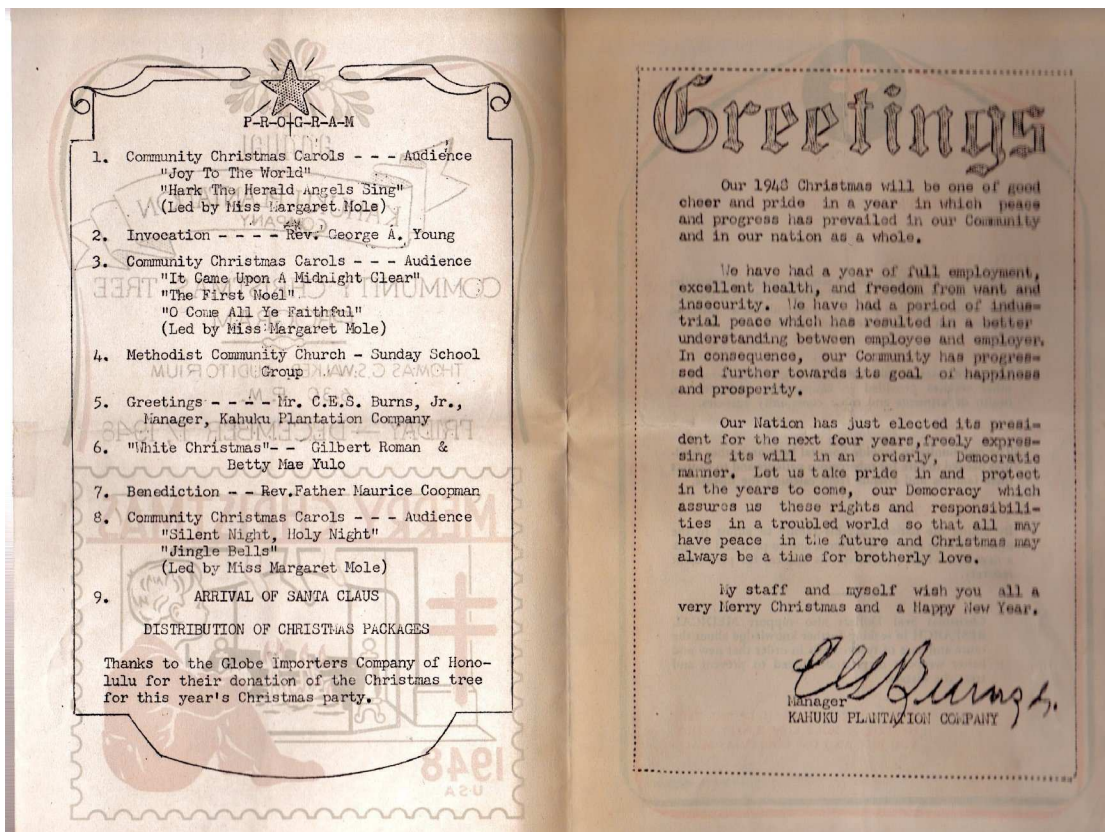 P-R-O-G-R-A-M
1. Community Christmas Carols - - - Audience
"Joy To The World"
"Hark The Herald Angels Sing"
(Led by Miss Margaret Mole)
2. Invocation - - - - Rev. George A. Young
3. Community Christmas Carols - - - Audience
"It Came Upon A Midnight Clear"
"The First Noel"
"O Come All Ye Faithful"
(Led by Miss Margaret Mole)
4. Methodist Community Church - Sunday School
Group
5. Greetings - - - - Mr. C.E.S. Burns, Jr.,
Manager, Kahuku Plantation Company
6. "White Christmas"- - Gilbert Roman &
Betty Mae Yulo
7. Benediction - - Rev.Father Maurice Coopman
8. Community Christmas Carols - - - Audience
"Silent Night, Holy Night"
"Jingle Bells"
(Led by Miss Margaret Mole)
9. ARRIVAL OF SANTA CLAUS
DISTRIBUTION OF CHRISTMAS PACKAGES
Thanks to the Globe Importers Company of Hono-
lulu for their donation of the Christmas tree
for this year's Christmas party.
Greetings
Our 1948 Christmas will be one of good
cheer and pride in a year in which peace
and progress has prevailed in our Community
and in our nation as a whole.
We have had a year of full employment,
excellent health, and freedom from want and
insecurity. We have had a period of indus-
trial peace which has resulted in a better
understanding between employee and employer.
In consequence, our Community has progres-
sed further towards its goal of happiness
and prosperity.
Our Nation has just elected its presi-
dent for the next four years,freely expres-
sing its will in an orderly, Democratic
manner. Let us take pride in and protect
in the years to come, our Democracy which
assures us these rights and responsibili-
ties in a troubled world so that all may
have peace in the future and Christmas may
always be a time for brotherly love.
My staff and myself wish you all a
very Merry Christmas and a Happy New Year.
CES Burns Jr.
Manager
KAHUKU PLANTATION COMPANY